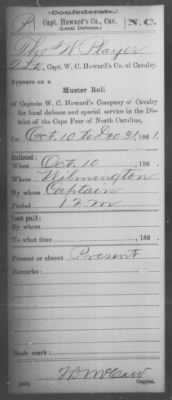 (Confederate.)
P Capt. Howard's Co., Cav. N.C.
(Local Defense.)
Thos W Player
Capt. W. C. Howard's Co. of Cavalry.
Appears on a
Muster Roll
of Captain W. C. Howard's Company of Cavalry
for local defense and special service in the Dis-
trict of the Cape Fear of North Carolina,
for Oct. 10 to Dec 31, 1861.
Enlisted:
When Oct. 10, 186 .
Where Wilmington
By whom Captain
Period 12 m
Last paid:
By whom
To what time , 186 .
Present or absent Present
Remarks:
Book mark:
Copyist.